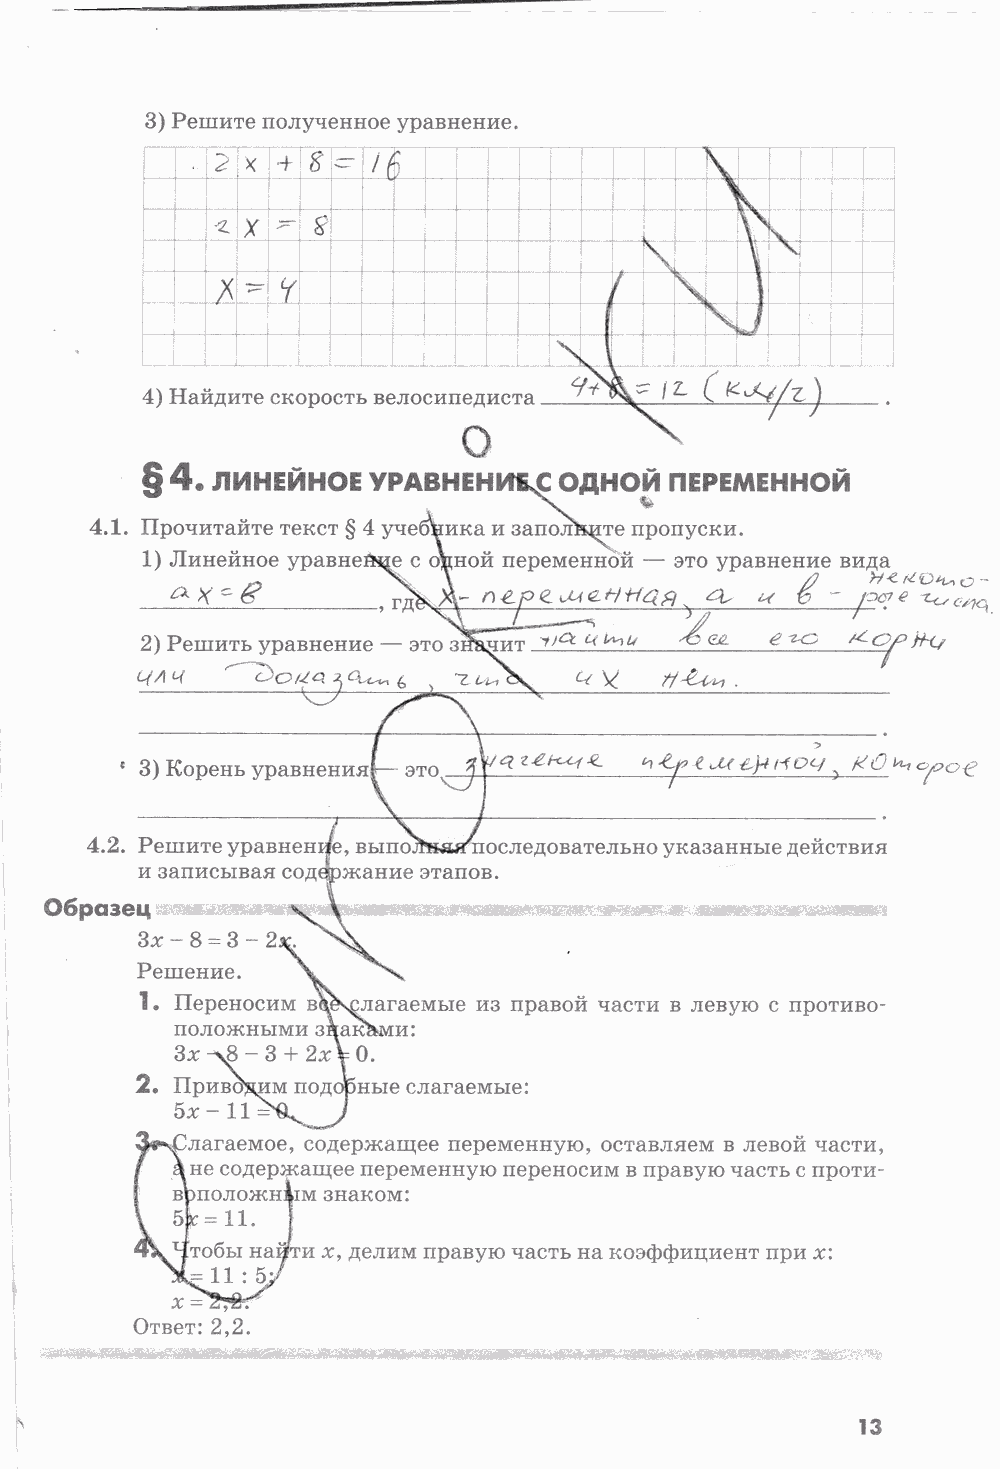 3) Решите полученное уравнение.
2x + 8 = 16
2x = 8
x = 4
4) Найдите скорость велосипедиста 4+8 = 12 (км/г).
§ 4. ЛИНЕЙНОЕ УРАВНЕНИЕ С ОДНОЙ ПЕРЕМЕННОЙ
4.1. Прочитайте текст § 4 учебника и заполните пропуски.
1) Линейное уравнение с одной переменной — это уравнение вида
ax = в, где x - переменная, а и в - некоторые числа.
2) Решить уравнение — это значит найти все его корни
или доказать, что их нет.
3) Корень уравнения — это значение переменной, которое
4.2. Решите уравнение, выполняя последовательно указанные действия
и записывая содержание этапов.
Образец
3x − 8 = 3 − 2x.
Решение.
1. Переносим все слагаемые из правой части в левую с противо-
положными знаками:
3x − 8 − 3 + 2x = 0.
2. Приводим подобные слагаемые:
5x − 11 = 0.
3. Слагаемое, содержащее переменную, оставляем в левой части,
а не содержащее переменную переносим в правую часть с проти-
воположным знаком:
5x = 11.
4. Чтобы найти x, делим правую часть на коэффициент при x:
x = 11 : 5;
x = 2,2.
Ответ: 2,2.
13